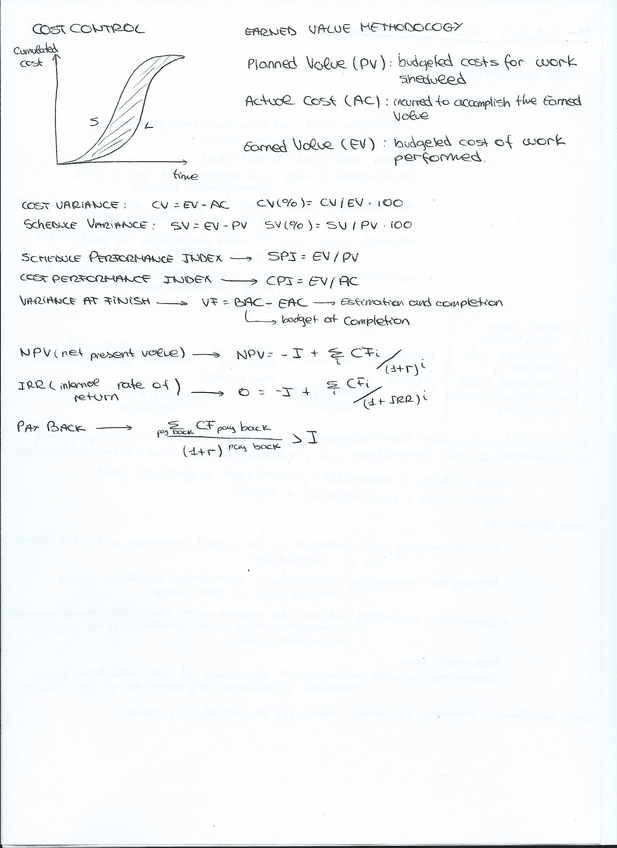 COST CONTROL
EARNED VALUE METHODOLOGY
Cumulated
cost
S
L
time
Planned Value (PV): budgeted costs for work
sheduled
Actual Cost (AC): incurred to accomplish the Earned
Value
Earned Value (EV): budgeted cost of work
performed.
COST VARIANCE: CV = EV - AC CV(%) = CV/EV · 100
SCHEDULE VARIANCE: SV = EV - PV SV(%) = SV/PV · 100
SCHEDULE PERFORMANCE INDEX → SPI = EV/PV
COST PERFORMANCE INDEX → CPI = EV/AC
VARIANCE AT FINISH → VF = BAC - EAC → Estimation and completion
budget at completion
NPV (net present value) → NPV = -I + Σi CFi/(1+r)^i
IRR (internal rate of return) → 0 = -I + Σi CFi/(1+IRR)^i
PAY BACK → Σ pay back CF pay back / (1+r)^pay back > I